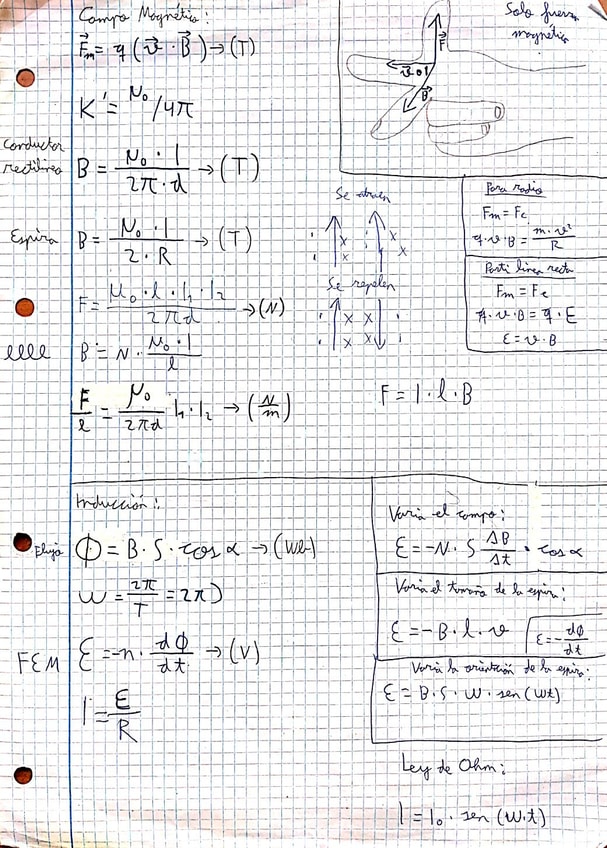 Campo Magnético:
F⃗m = q (v⃗ · B⃗) → (T)
K' = μ₀/4π
Conductor rectilíneo B = μ₀ · I / 2π · d → (T)
Espira B = μ₀ · I / 2 · R → (T)
F = μ₀ · l · I₁ · I₂ / 2πd → (N)
B = N · μ₀ · I / l
F/l = μ₀/2πd · I₁ · I₂ → (N/m)
Solo fuerza
magnética
F⃗
v⃗ o I
B⃗
Se atraen
x x
x x
Se repelen
x x
x x
Para radio
Fm = Fc
q · v · B = m · v²/R
Parti línea recta
Fm = Fe
q · v · B = q · E
E = v · B
F = I · l · B
Inducción:
Flujo Φ = B · S · cos α → (Wb)
W = 2π/T = 2π
FEM Ɛ = -n · dΦ/dt → (V)
I = Ɛ/R
Varía el campo:
Ɛ = -N · S ΔB/Δt · cos α
Varía el tamaño de la espira:
Ɛ = -B · l · v
Ɛ = - dΦ/dt
Varía la orientación de la espira:
Ɛ = B · S · W · sen (Wt)
Ley de Ohm:
I = I₀ · sen (W·t)